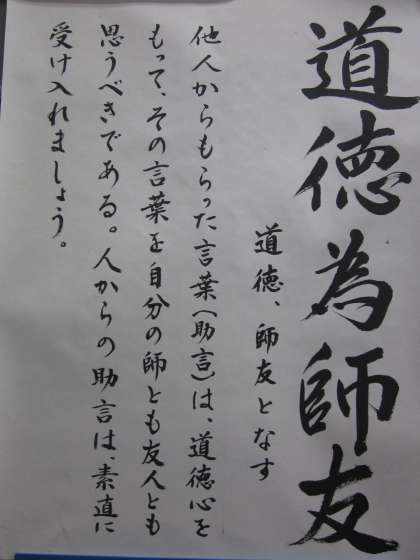 道徳為師友
道徳、師友となす
他人からもらった言葉(助言)は、道徳心を
もって、その言葉を自分の師とも友人とも
思うべきである。人からの助言は、素直に
受け入れましょう。